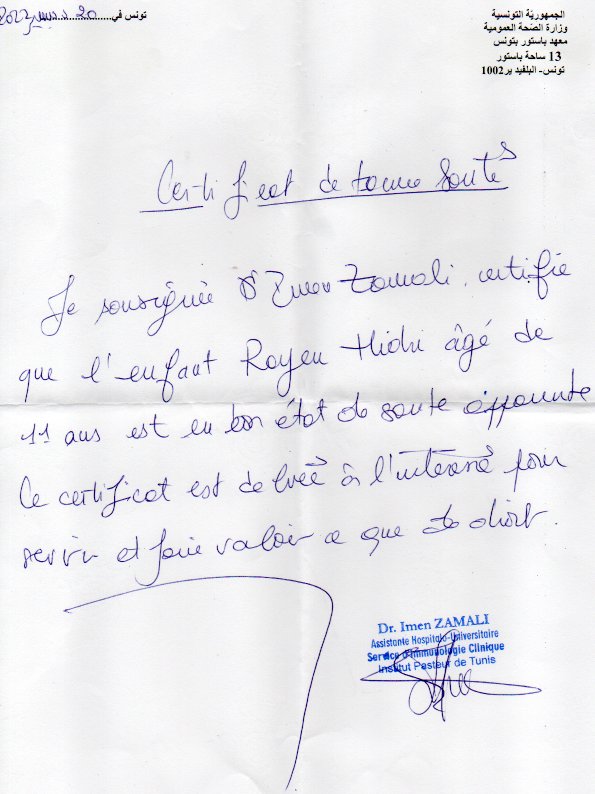 الجمهورية التونسية
وزارة الصحة العمومية
معهد باستور بتونس
13 ساحة باستور
تونس- البلفيدير 1002
تونس في 20 2023
Certificat de bonne santé
Je soussignée Dr Imen Zamali, certifie
que l'enfant Rayen Hidri âgé de
11 ans est en bon état de santé apparente
Ce certificat est delivré à l'interessé pour
servir et faire valoir ce que de droit.
Dr. Imen ZAMALI
Assistante Hospitalo-Universitaire
Service d'Immunologie Clinique
Institut Pasteur de Tunis